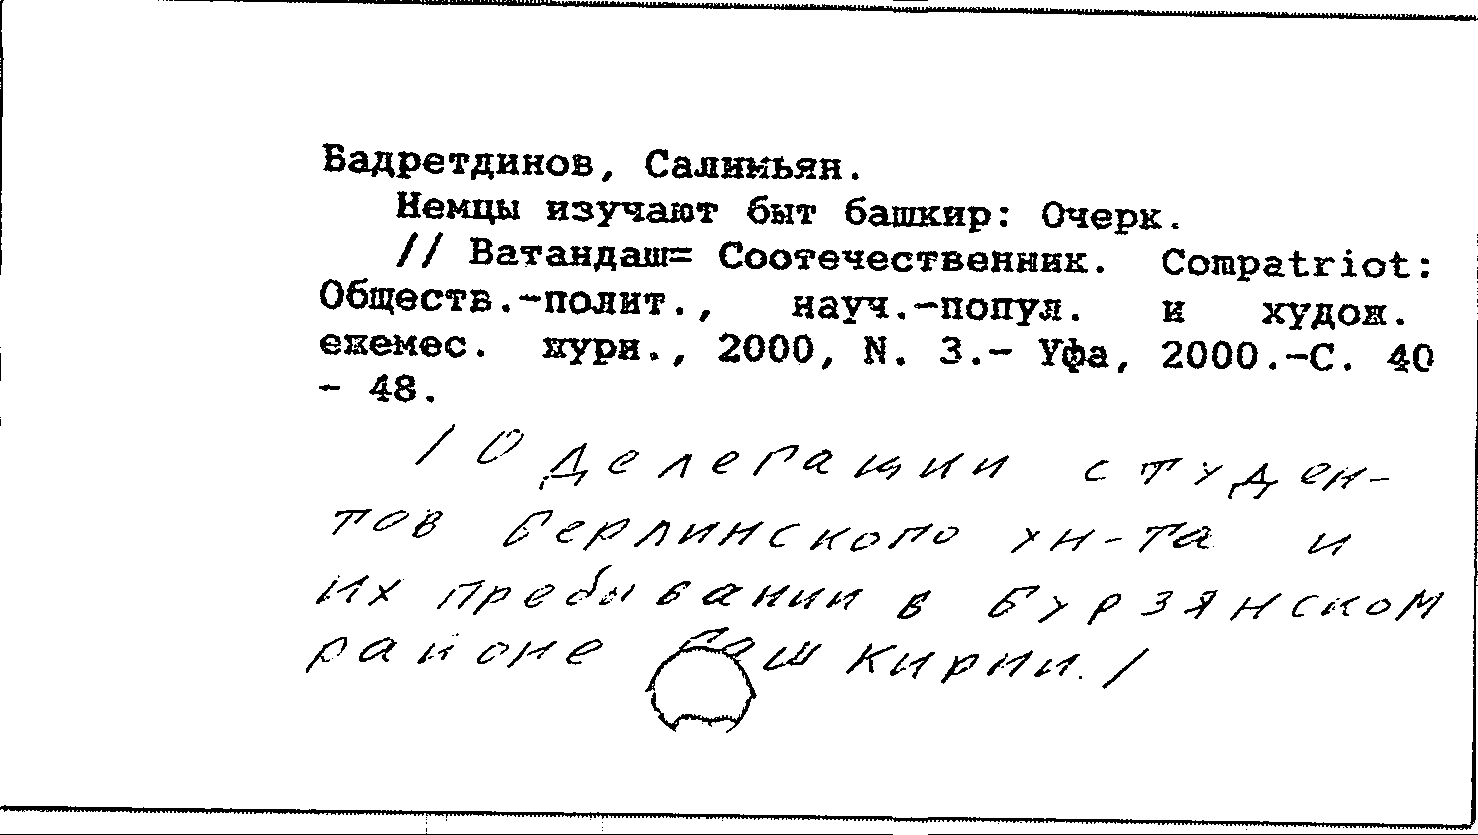 Бадретдинов, Салимьян.
Немцы изучают быт башкир: Очерк.
// Ватандаш= Соотечественник. Compatriot:
Обществ.-полит., науч.-попул. и худож.
ежемес. журн., 2000, N. 3.- Уфа, 2000.-С. 40
- 48.
/ О делегации студен-
тов Берлинского ун-та и
их пребывании в Бурзянском
районе Башкирии. /